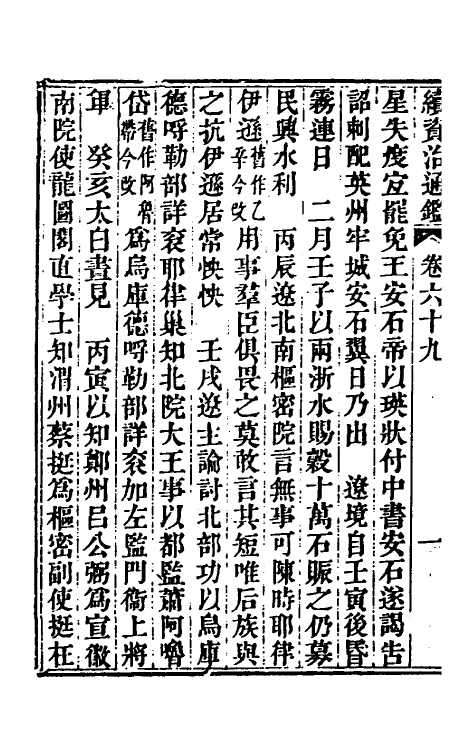 續資治通鑑 卷六十九 一
星失度宜罷免王安石帝以瑛狀付中書安石遂謁告
詔刺配英州牢城安石翼日乃出 遼境自壬寅後昏
霧連日 二月壬子以兩浙水賜穀十萬石賑之仍募
民興水利 丙辰遼北南樞密院言無事可陳時耶律
伊遜舊作乙辛今改用事羣臣俱畏之莫敢言其短唯后族與
之抗伊遜居常怏怏 壬戌遼主論討北部功以烏庫
德呼勒部詳衮耶律巢知北院大王事以都監蕭阿嚕
岱舊作阿魯帶今改爲烏庫德呼勒部詳衮加左監門衞上將
軍 癸亥太白晝見 丙寅以知鄭州呂公弼爲宣徽
南院使龍圖閣直學士知渭州蔡挺爲樞密副使挺在